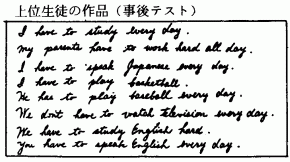 上位生徒の作品（事後テスト）
I have to study every day.
My parents have to work hard all day.
I have to speak Japanese every day.
I have to play basketball.
He has to play baseball every day.
We don't have to watch television every day.
We have to study English hard.
You have to speak English every day.